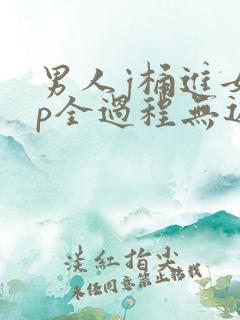 男人j桶进女
p全過程無遮
淡紅指尖
未经同意禁止转载